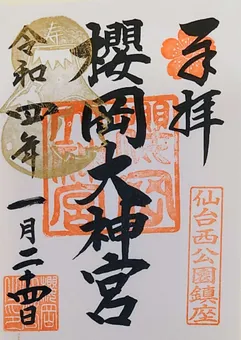 奉拝
仙台西公園鎮座
櫻岡大神宮
寿
令和四年
一月二十四日